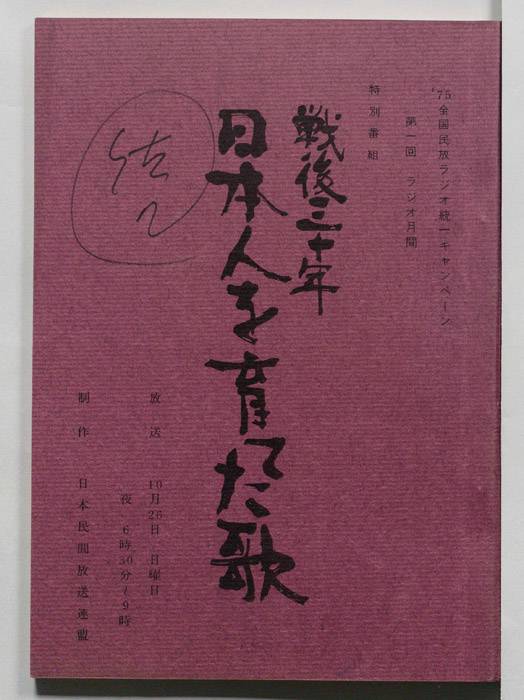 '75全国民放ラジオ統一キャンペーン
第一回 ラジオ月間
特別番組
戦後三十年
日本人を育てた歌
放送 10月26日 日曜日
夜 6時30分~9時
制作 日本民間放送連盟